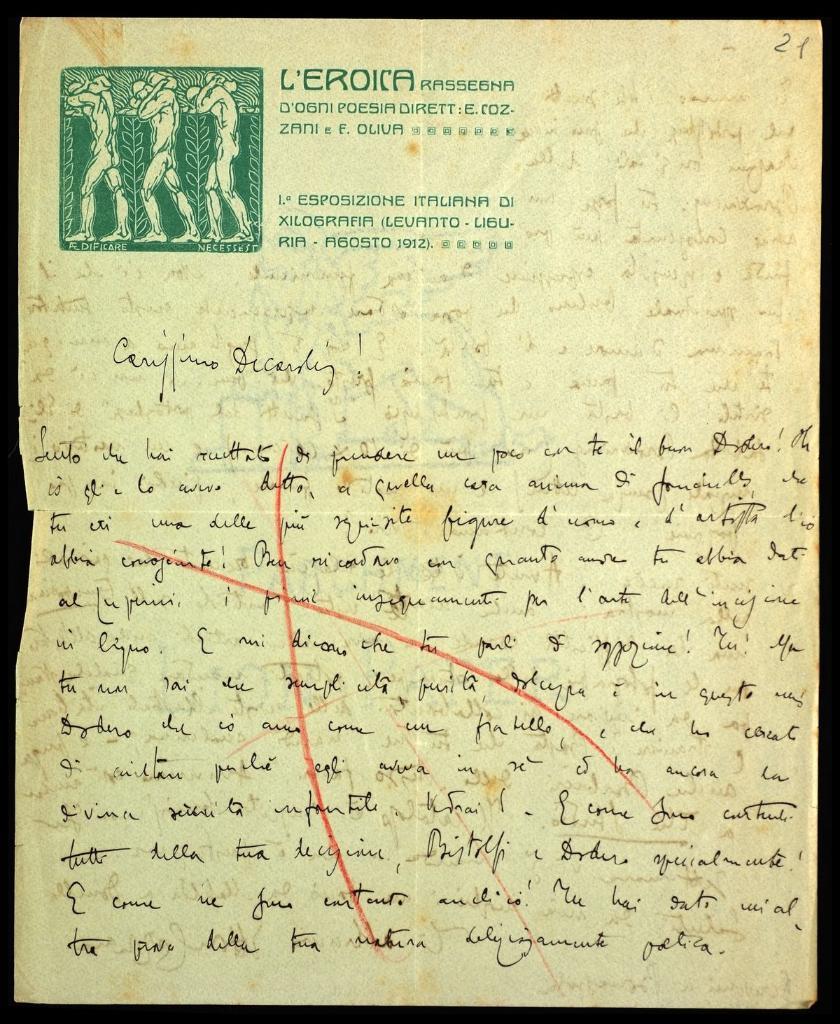 21
L'EROICA RASSEGNA
D'OGNI POESIA DIRETT: E. COZ-
ZANI E F. OLIVA
I.ª ESPOSIZIONE ITALIANA DI
XILOGRAFIA (LEVANTO - LIGU-
RIA - AGOSTO 1912).
ÆDIFICARE NECESSE EST
Carissimo Decarolis!
Sento che hai accettato di prendere un poco con te il buon Dodero! Oh
io gli e lo avevo detto, a quella cara anima di fanciullo, che
tu eri una delle più squisite figure d'uomo e d'artista ch'io
abbia conosciute! Ben ricordavo con quanto amore tu abbia dati
al i primi insegnamenti per l'arte dell'incisione
in legno. E mi dicono che tu parli di soggezione! Tu! Ma
tu non sai che semplicità, purità, dolcezza è in questo mio
Dodero che io amo come un fratello, e che ho cercato
di aiutare perché egli aveva in sé ed ha ancora la
divina serenità infantile. Vedrai! E come sono contenti
tutti della tua decisione, Bistolfi e Dodero specialmente!
E come ne sono contento anch'io! Tu hai dato un'al-
tra prova della tua natura deliziosamente poetica.